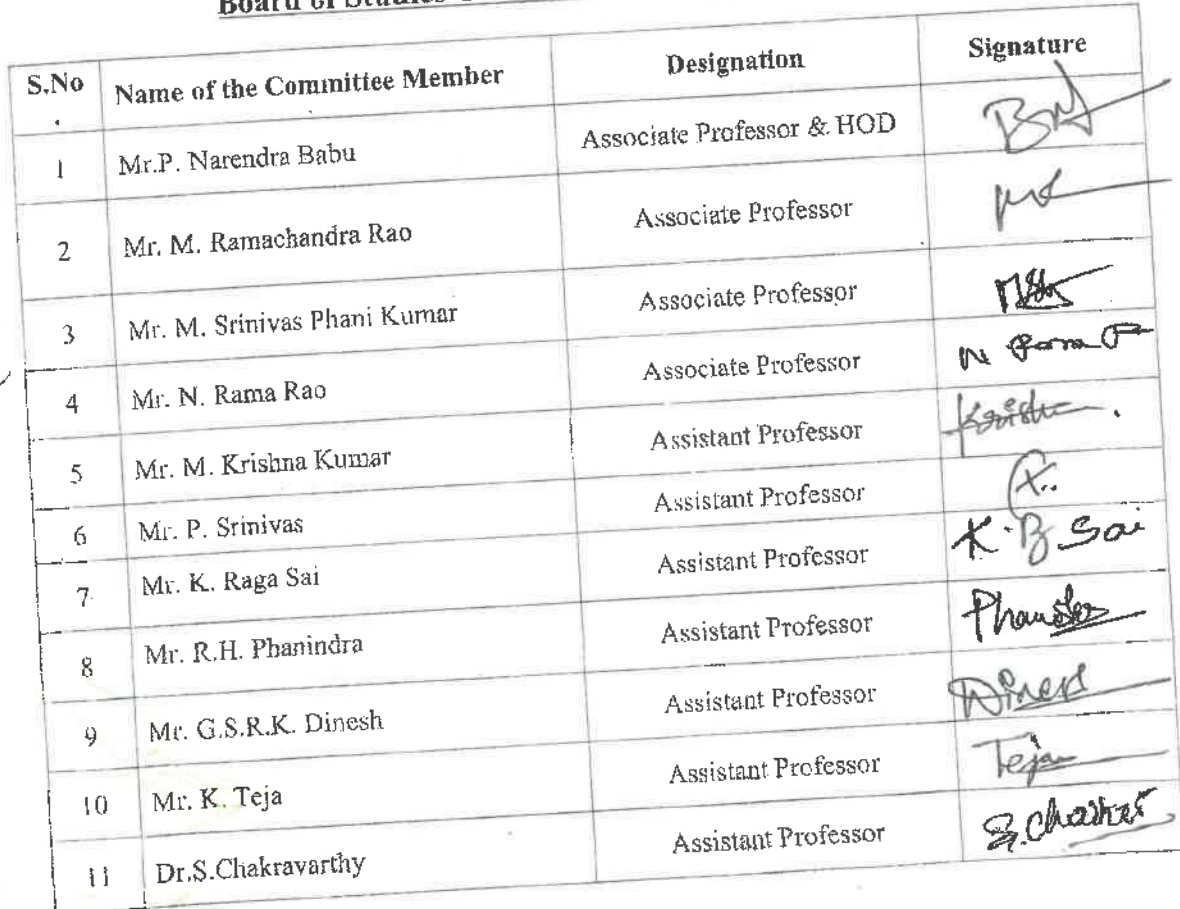 Board of Studies
S.No. Name of the Committee Member Designation Signature
1 Mr.P. Narendra Babu Associate Professor & HOD
2 Mr. M. Ramachandra Rao Associate Professor
3 Mr. M. Srinivas Phani Kumar Associate Professor
4 Mr. N. Rama Rao Associate Professor
5 Mr. M. Krishna Kumar Assistant Professor
6 Mr. P. Srinivas Assistant Professor
7 Mr. K. Raga Sai Assistant Professor K. Sai
8 Mr. R.H. Phanindra Assistant Professor
9 Mr. G.S.R.K. Dinesh Assistant Professor Dinesh
10 Mr. K. Teja Assistant Professor Teja
11 Dr.S.Chakravarthy Assistant Professor